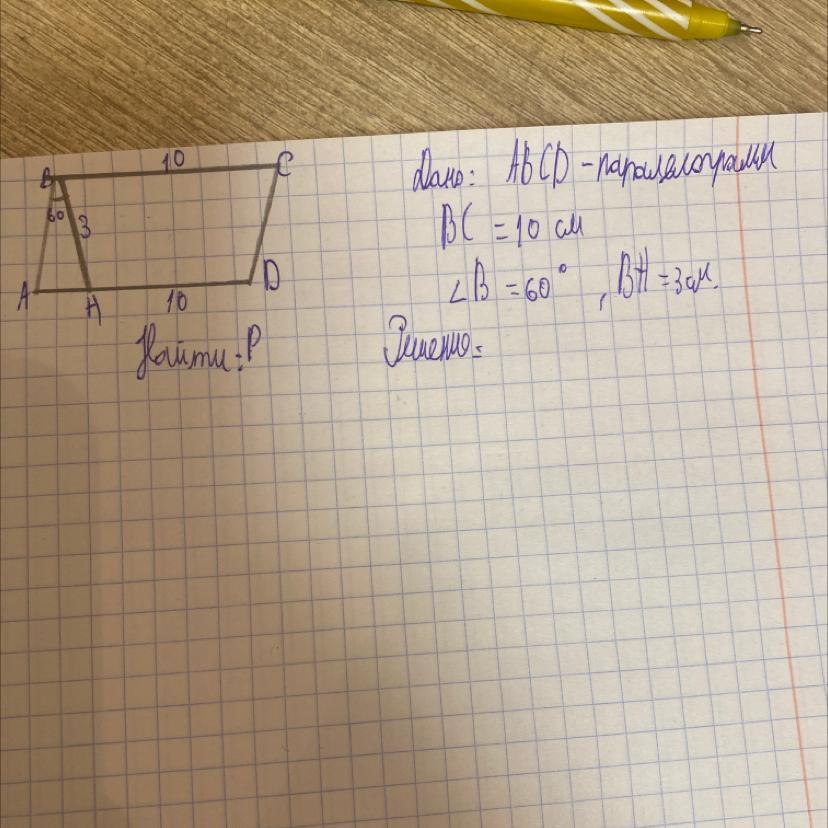 10
B
C
60
3
A
H
10
D
Дано: ABCD - параллелограмм
BC = 10 см
∠B = 60° , BH = 3 см.
Найти: P
Решение: